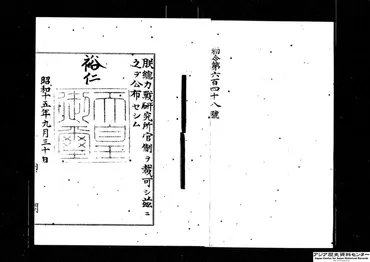 勅令第六百四十八號
朕總力戰硏究所官制ヲ裁可シ茲ニ
之ヲ公布セシム
裕仁
天皇
御璽
昭和十五年九月三十日
アジア歴史資料センター
Japan Center for Asian Historical Records